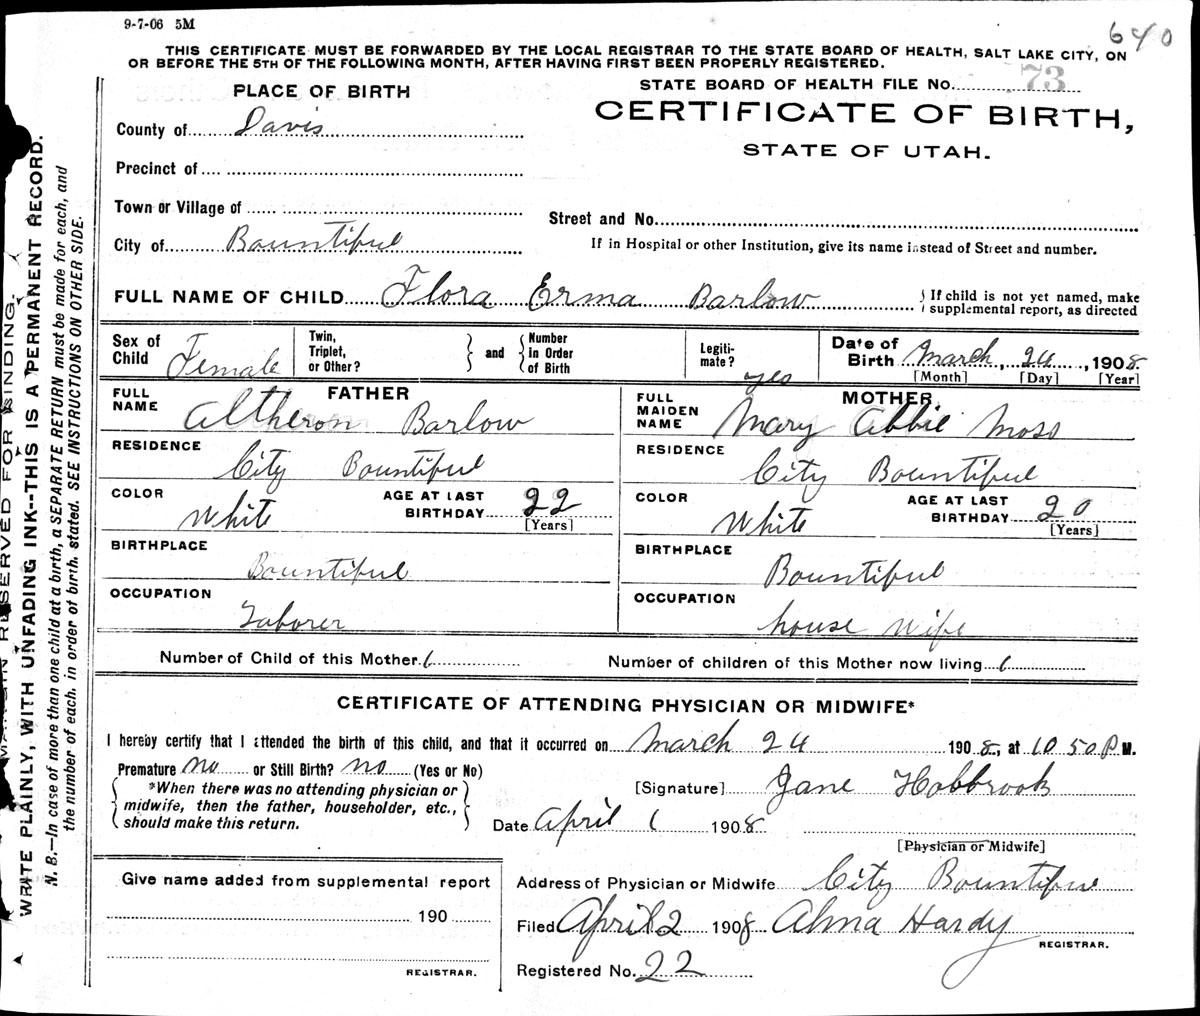 9-7-06 5M
640
THIS CERTIFICATE MUST BE FORWARDED BY THE LOCAL REGISTRAR TO THE STATE BOARD OF HEALTH, SALT LAKE CITY, ON
OR BEFORE THE 5TH OF THE FOLLOWING MONTH, AFTER HAVING FIRST BEEN PROPERLY REGISTERED.
STATE BOARD OF HEALTH FILE No. 73
PLACE OF BIRTH
CERTIFICATE OF BIRTH,
STATE OF UTAH.
County of Davis
Precinct of
Town or Village of
Street and No.
City of Bountiful
If in Hospital or other Institution, give its name instead of Street and number.
FULL NAME OF CHILD Flora Erma Barlow
} If child is not yet named, make
supplemental report, as directed
Sex of Child Female
Twin, Triplet, or Other?
and
Number in Order of Birth
Legiti-mate? yes
Date of Birth March, 24, 1908
[Month] [Day] [Year]
FATHER
FULL NAME Altheron Barlow
RESIDENCE City Bountiful
COLOR White
AGE AT LAST BIRTHDAY 22
[Years]
BIRTHPLACE Bountiful
OCCUPATION Laborer
MOTHER
FULL MAIDEN NAME Mary Abbie Moss
RESIDENCE City Bountiful
COLOR White
AGE AT LAST BIRTHDAY 20
[Years]
BIRTHPLACE Bountiful
OCCUPATION house wife
Number of Child of this Mother 1
Number of children of this Mother now living 1
CERTIFICATE OF ATTENDING PHYSICIAN OR MIDWIFE*
I hereby certify that I attended the birth of this child, and that it occurred on March 24 1908, at 10 50 P M.
Premature no or Still Birth? no (Yes or No)
*When there was no attending physician or
midwife, then the father, householder, etc.,
should make this return.
[Signature] Jane Hobbrook
Date April 1 1908
[Physician or Midwife]
Give name added from supplemental report
190
REGISTRAR.
Address of Physician or Midwife City Bountiful
Filed April 2 1908 Alma Hardy
REGISTRAR.
Registered No. 22
MARGIN RESERVED FOR BINDING.
WRITE PLAINLY, WITH UNFADING INK--THIS IS A PERMANENT RECORD.
N. B.—In case of more than one child at a birth, a SEPARATE RETURN must be made for each, and
the number of each, in order of birth, stated. SEE INSTRUCTIONS ON OTHER SIDE.